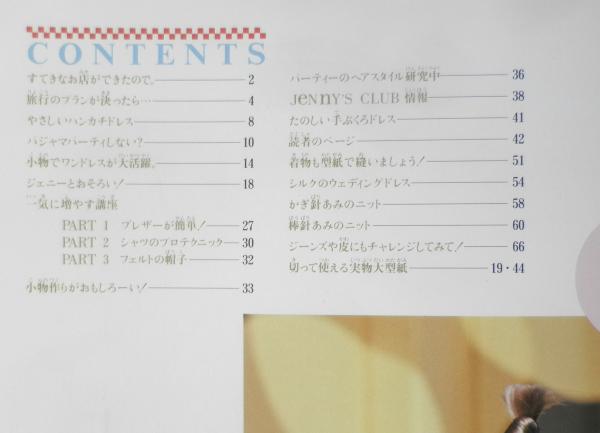 CONTENTS
すてきなお店ができたので。 2
旅行のプランが決ったら… 4
やさしいハンカチドレス 8
パジャマパーティしない? 10
小物でワンドレスが大活躍。 14
ジェニーとおそろい! 18
一気に増やす講座
PART 1 ブレザーが簡単! 27
PART 2 シャツのプロテクニック 30
PART 3 フェルトの帽子 32
小物作りがおもしろーい! 33
パーティーのヘアスタイル研究中 36
JENNY'S CLUB 情報 38
たのしい手ぶくろドレス 41
読者のページ 42
着物も型紙で縫いましょう! 51
シルクのウェディングドレス 54
かぎ針あみのニット 58
棒針あみのニット 60
ジーンズや皮にもチャレンジしてみて! 66
切って使える実物大型紙 19・44